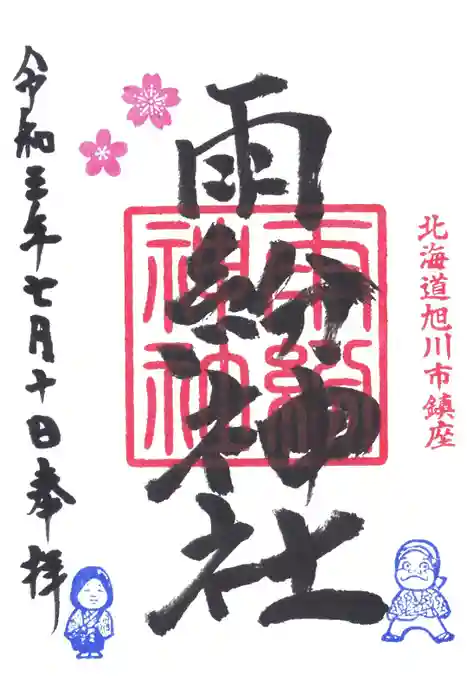 北海道旭川市鎮座
雨紛神社
令和三年七月十日奉拝